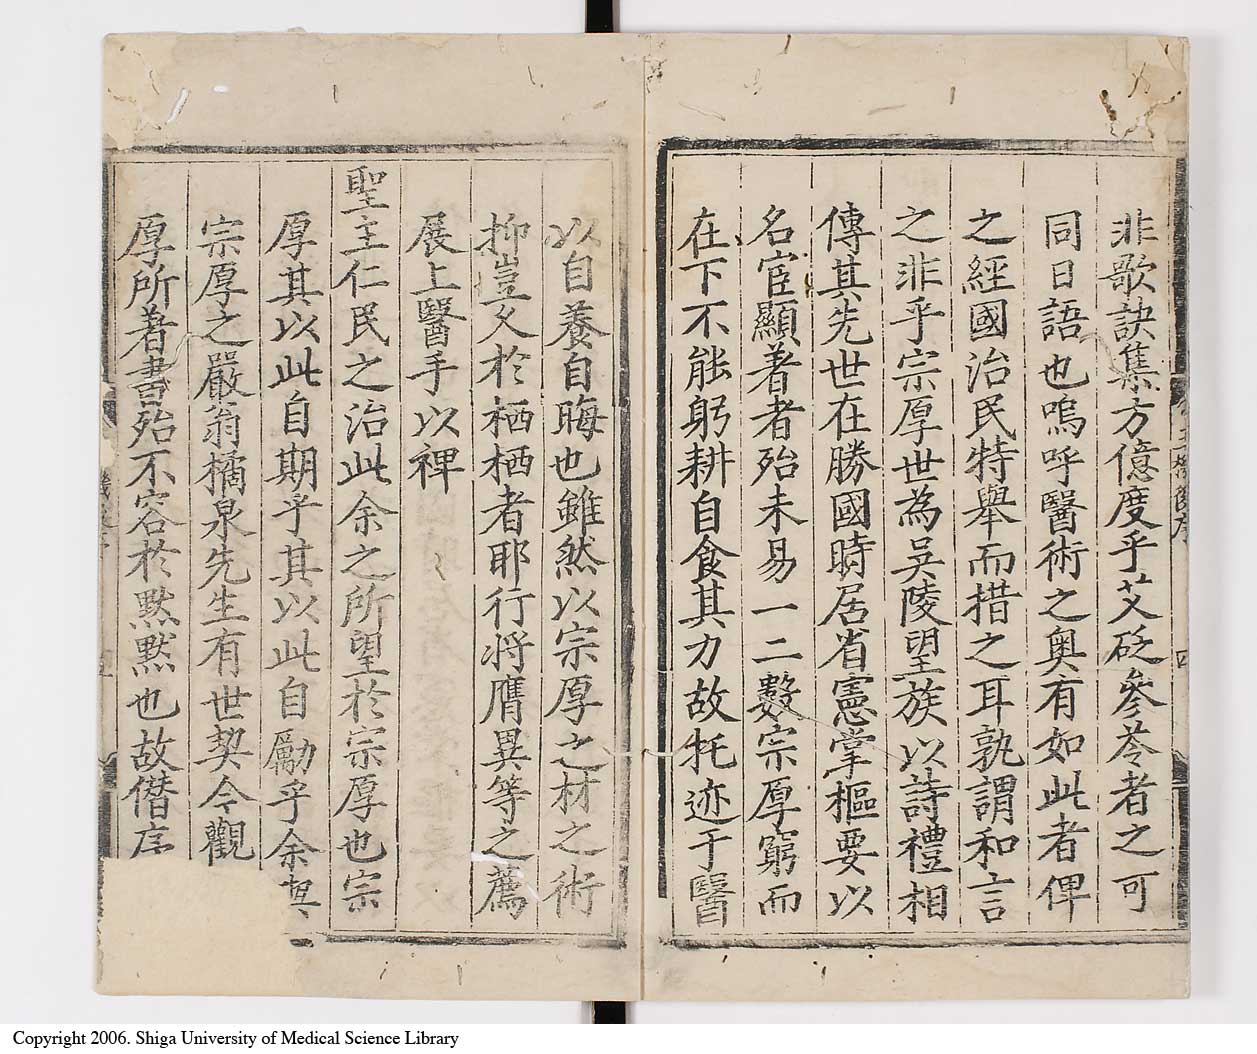 非歌訣集方億度乎艾砭參苓者之可
同日語也嗚呼醫術之奧有如此者俾
之經國治民特舉而措之耳孰謂和言
之非乎宗厚世為吳陵望族以詩禮相
傳其先世在勝國時居省憲掌樞要以
名宦顯著者殆未易一二數宗厚窮而
在下不能躬耕自食其力故托迹于醫
以自養自晦也雖然以宗厚之材之術
抑豈久於栖栖者耶行將膺異等之薦
展上醫手以裨
聖主仁民之治此余之所望於宗厚也宗
厚其以此自期乎其以此自勵乎余與
宗厚之嚴翁橘泉先生有世契今觀
厚所著書殆不容於默默也故僭序
四
Copyright 2006. Shiga University of Medical Science Library